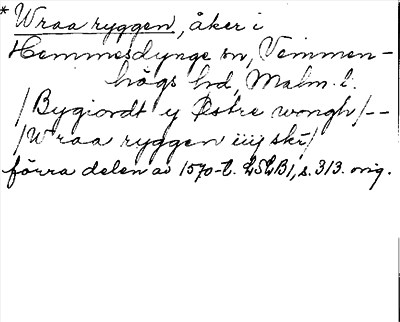 * Wraa ryggen, åker i
Hemmesdynge sn, Vemmen-
högs hd, Malm. l.
/Bygiordt y Østre wongh/--
/Wraa ryggen iiij skr/
förra delen av 1570-t. LSLB1, s. 313. orig.